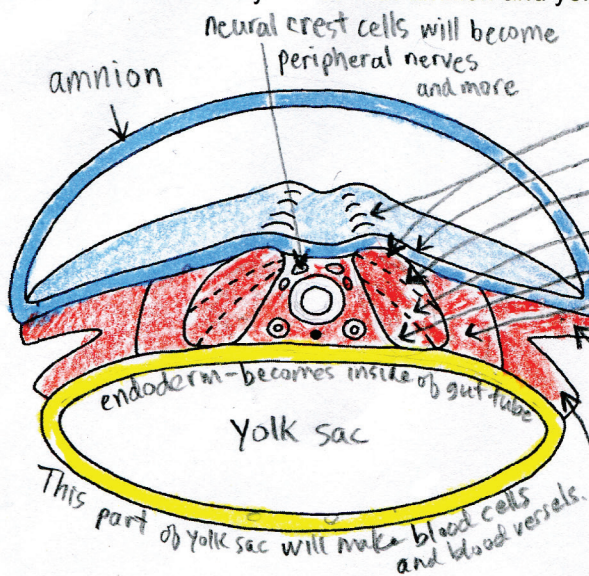 neural crest cells will become
peripheral nerves
and more
amnion
endoderm-becomes inside of gut tube
Yolk sac
This part of yolk sac will make blood cells
and blood vessels.